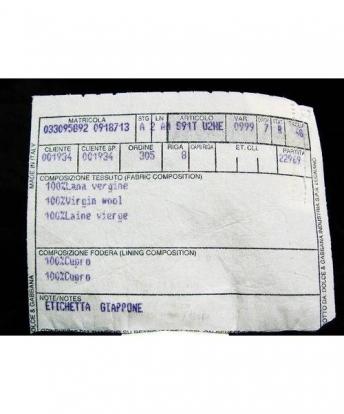 MATRICOLA STG LN ARTICOLO VAR. DROP TAGLIA
033095892 0918713 A 2 AM S91T U2HE 0999 7 R 48
CLIENTE CLIENTE SP. ORDINE RIGA ET. CLI. PARTITA
001934 001934 305 8 22969
COMPOSIZIONE TESSUTO (FABRIC COMPOSITION)
100%Lana vergine
100%Virgin wool
100%Laine vierge
COMPOSIZIONE FODERA (LINING COMPOSITION)
100%Cupro
100%Cupro
NOTE/NOTES
ETICHETTA GIAPPONE
MADE IN ITALY
DOLCE & GABBANA
DOLCE & GABBANA INDUSTRIA S.P.A.